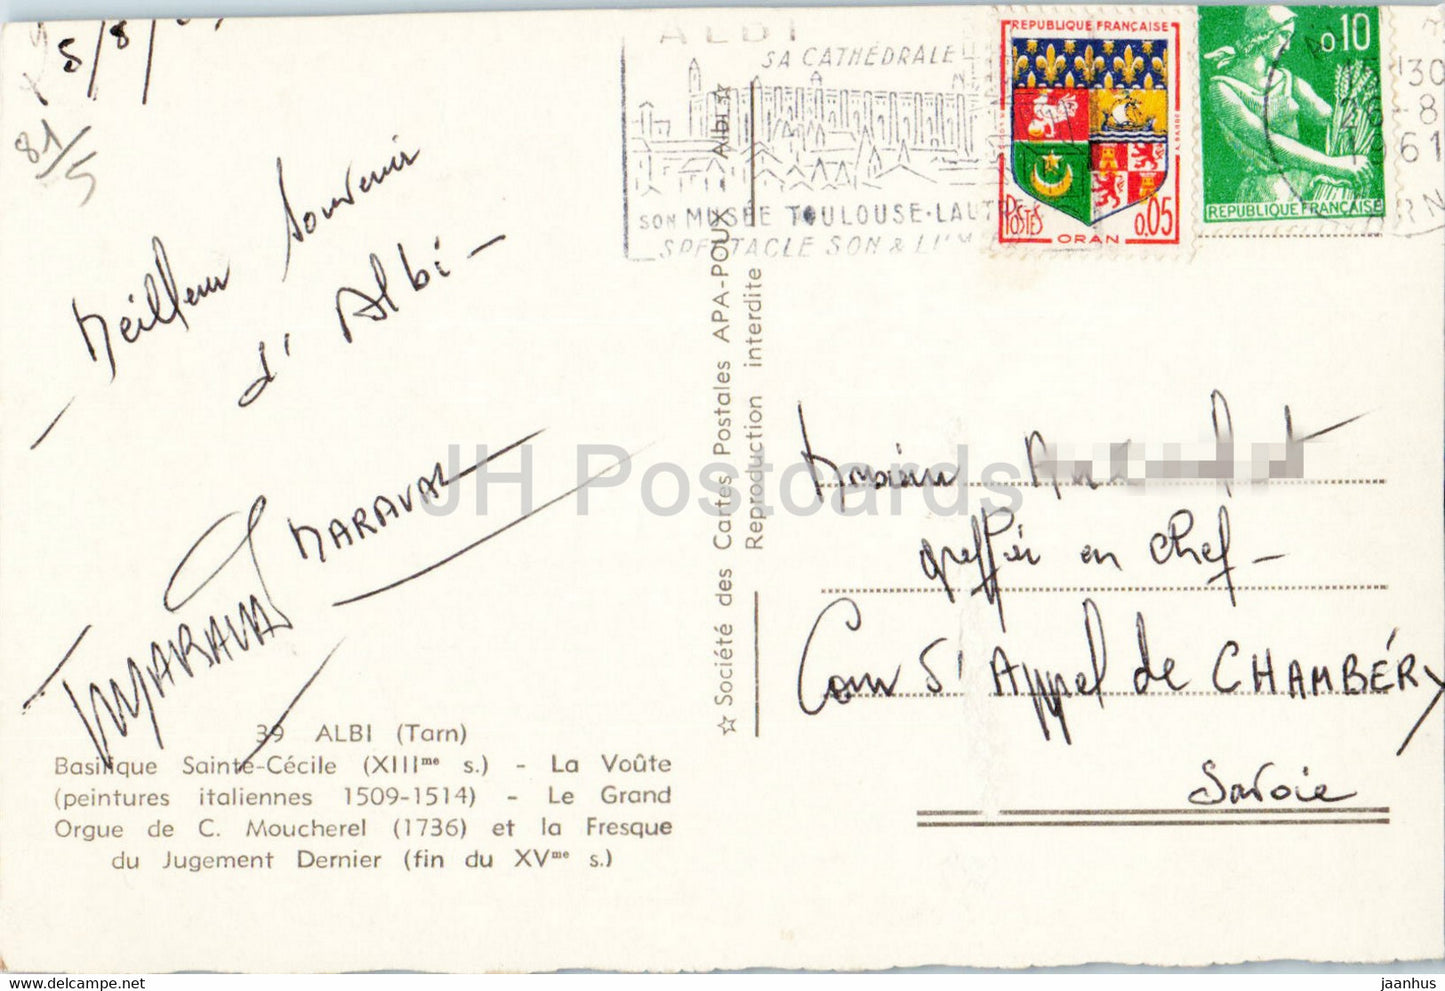 5/8/
81/5
Meilleur Souvenir
d'Albi -
MARAVAL
MARAVAL
39 ALBI (Tarn)
Basilique Sainte-Cécile (XIIIme s.) - La Voûte
(peintures italiennes 1509-1514) - Le Grand
Orgue de C. Moucherel (1736) et la Fresque
du Jugement Dernier (fin du XVme s.)
☆ Société des Cartes Postales APA-POUX - Albi ☆
Reproduction interdite
ALBI
SA CATHÉDRALE
SON MUSÉE TOULOUSE-LAUT
SPECTACLE SON & LUM
REPUBLIQUE FRANÇAISE
POSTES
0,05
ORAN
0,10
REPUBLIQUE FRANÇAISE
15 30
26-8
1961
TARN
Monsieur
greffier en chef -
Cour d'Appel de CHAMBÉRY
Savoie
JH Postcards
jaanhus